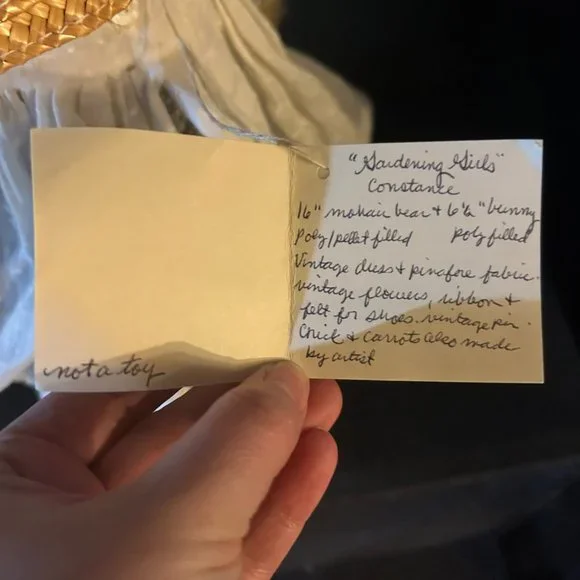 "Gardening Girls"
Constance
16" mohair bear + 6½" bunny
Poly/pellet filled poly filled
Vintage dress + pinafore fabric.
vintage flowers, ribbon +
felt for shoes. vintage pin.
Chick & Carrots also made
by artist
not a toy